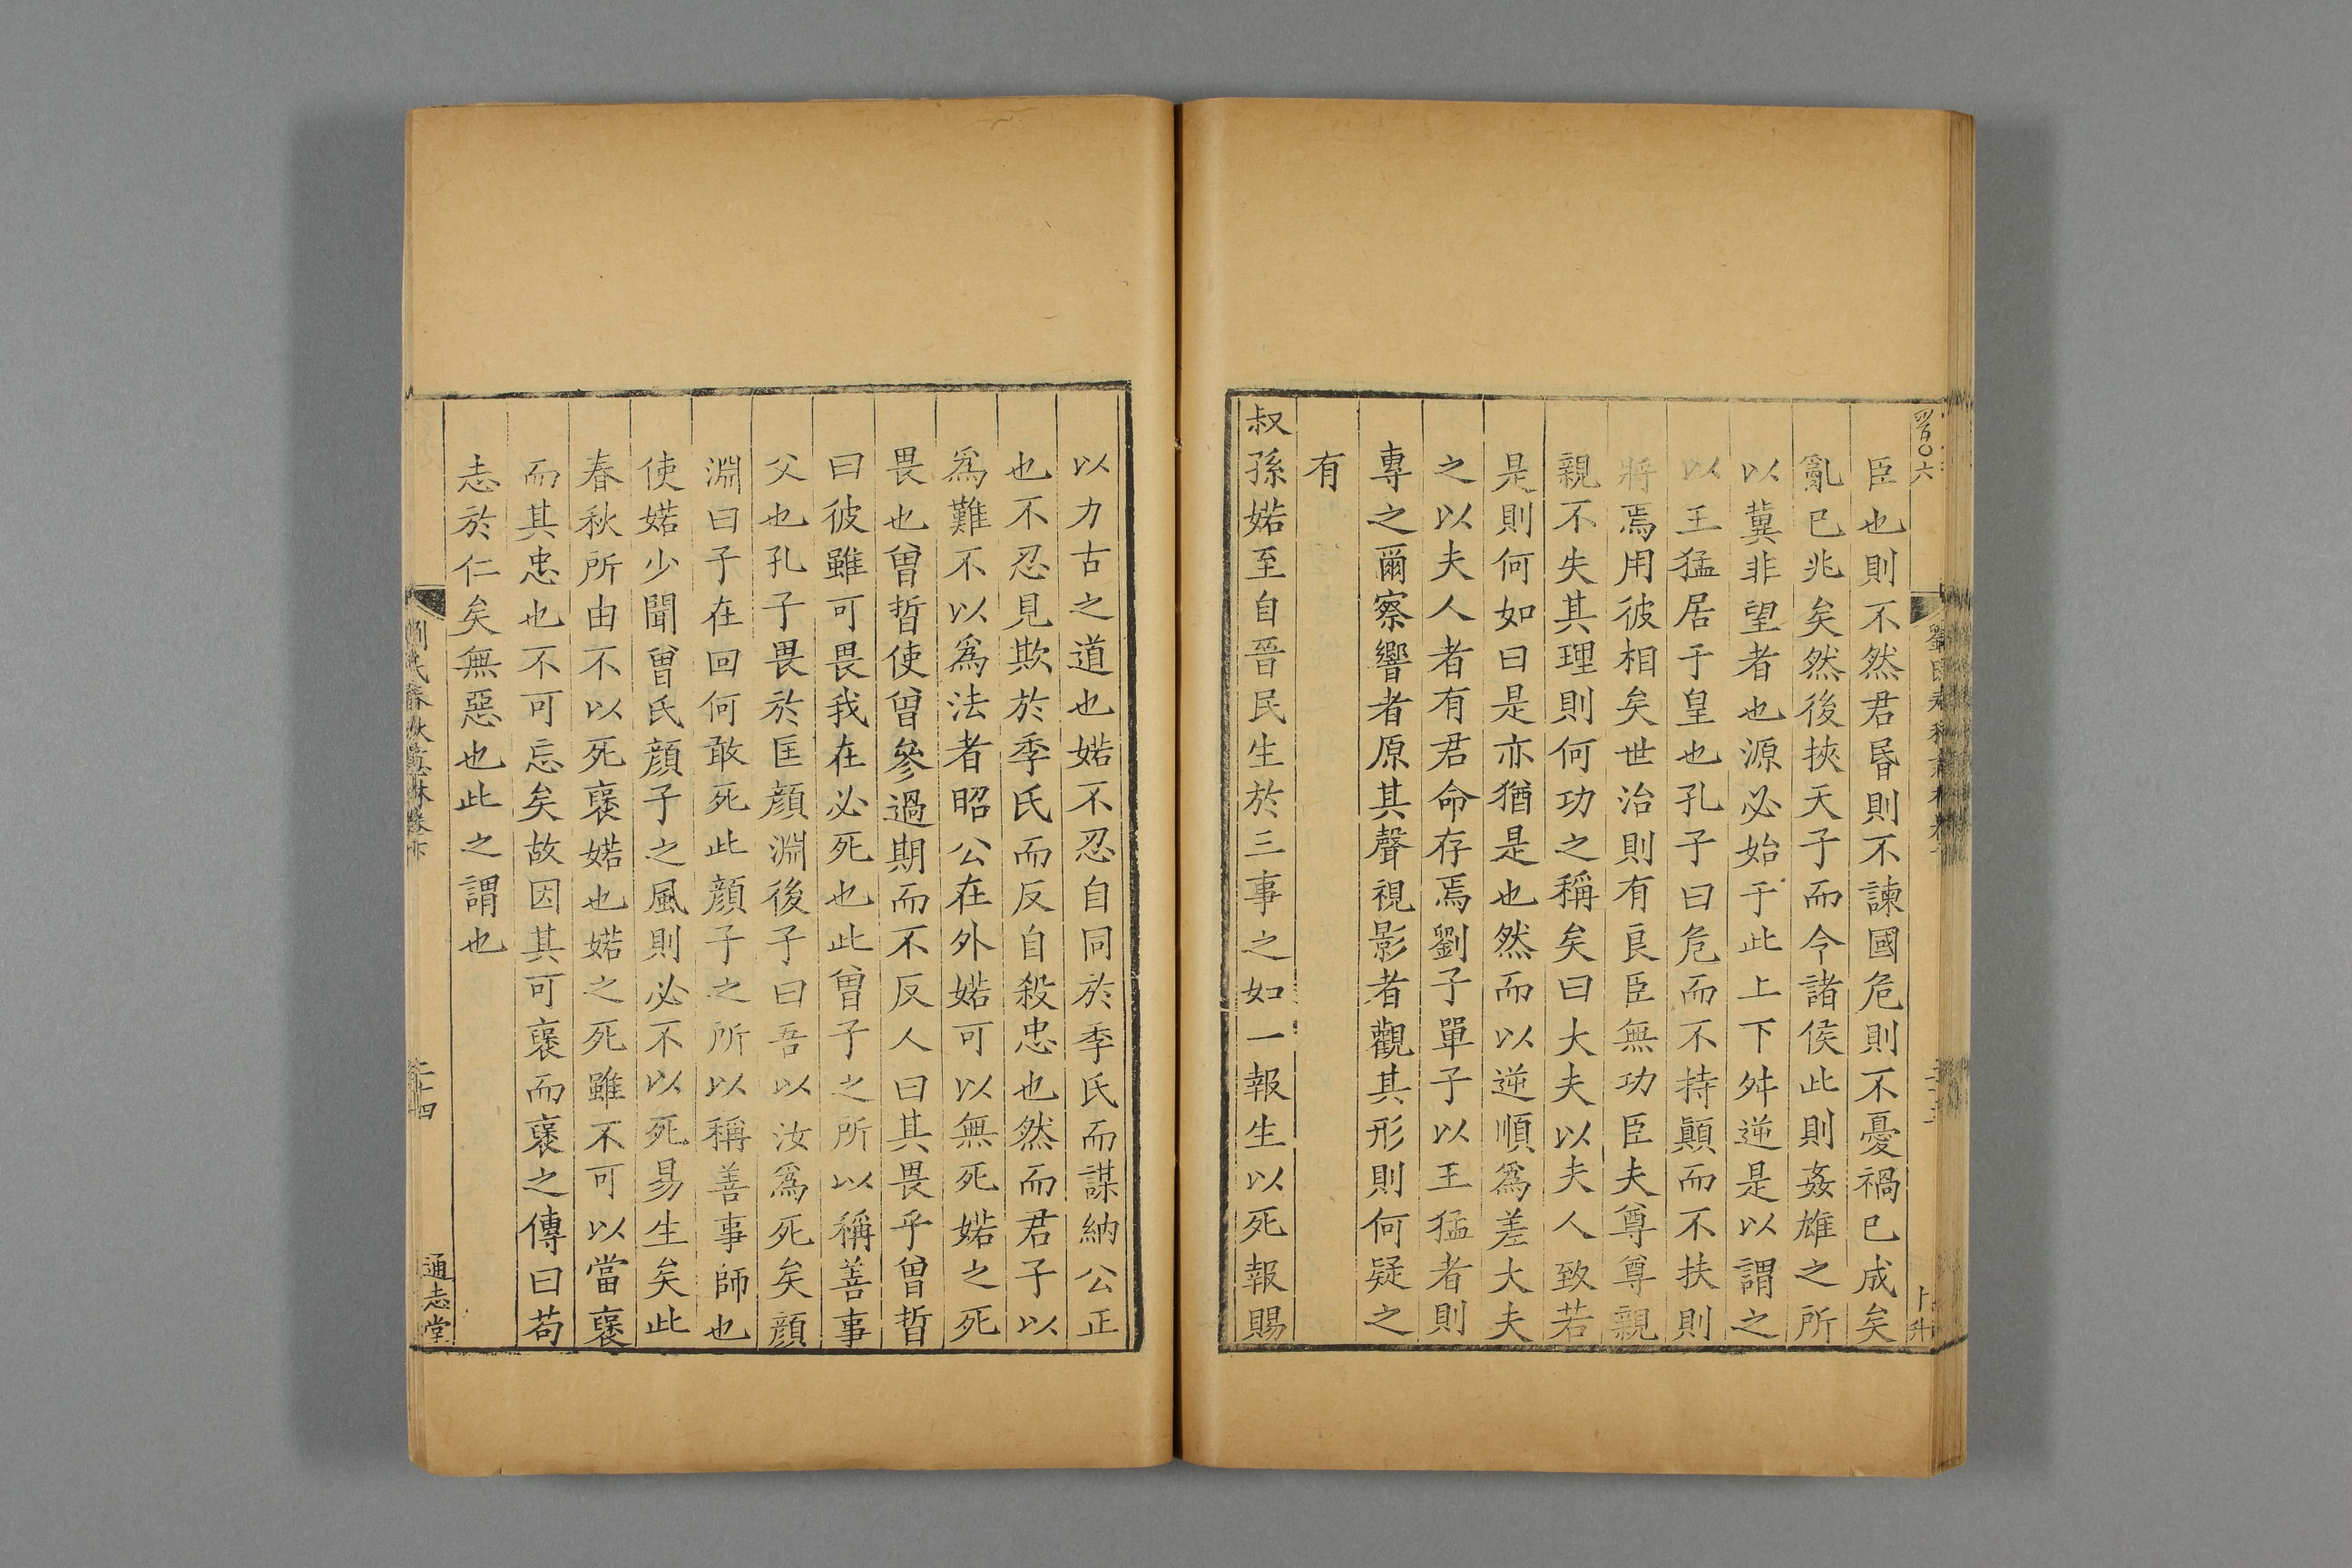 臣也則不然君昬則不諫國危則不憂禍已成矣
亂已兆矣然後挾天子而令諸侯此則姦雄之所
以冀非望者也源必始于此上下舛逆是以謂之
以王猛居于皇也孔子曰危而不持顛而不扶則
將焉用彼相矣世治則有良臣無功臣夫尊尊親
親不失其理則何功之稱矣曰大夫以夫人致若
是則何如曰是亦猶是也然而以逆順爲差大夫
之以夫人者有君命存焉劉子單子以王猛者則
專之爾察響者原其聲視影者觀其形則何疑之
有
叔孫婼至自晉民生於三事之如一報生以死報賜
以力古之道也婼不忍自同於季氏而謀納公正
也不忍見欺於季氏而反自殺忠也然而君子以
爲難不以爲法者昭公在外婼可以無死婼之死
畏也曾晳使曾參過期而不反人曰其畏乎曾晳
曰彼雖可畏我在必死也此曾子之所以稱善事
父也孔子畏於匡顔淵後子曰吾以汝爲死矣顔
淵曰子在回何敢死此顔子之所以稱善事師也
使婼少聞曾氏顔子之風則必不以死易生矣此
春秋所由不以死襃婼也婼之死雖不可以當襃
而其忠也不可忘矣故因其可襃而襃之傳曰苟
志於仁矣無惡也此之謂也
通志堂